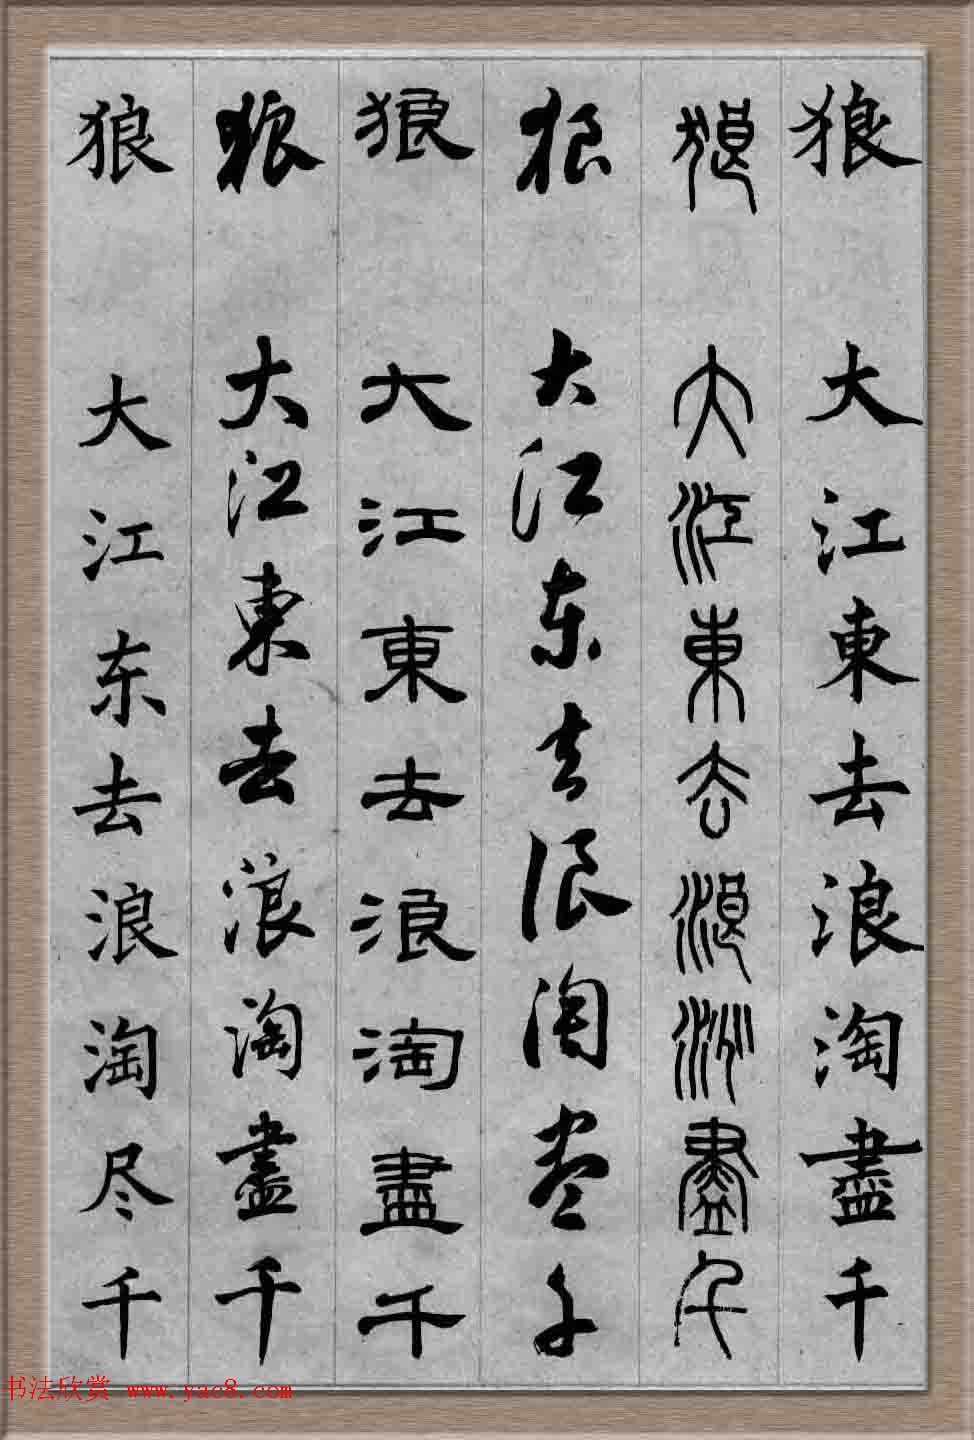 狼 大江東去浪淘盡千
狼 大江東去浪淘盡千
狼 大江东去浪淘盡千
狼 大江東去浪淘盡千
狼 大江東去浪淘盡千
狼 大江东去浪淘尽千
书法欣赏 www.yac8.com